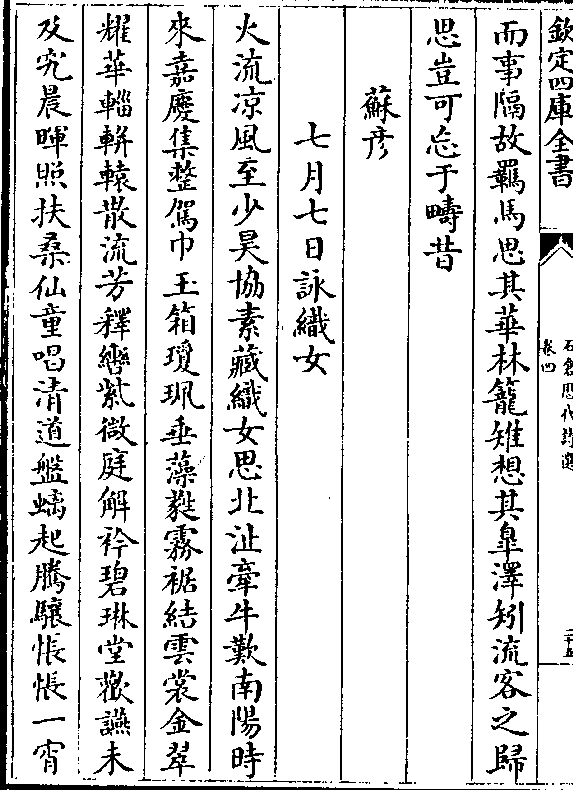 欽定四庫全書
石倉歷代詩選
卷四
二十五
而事隔故羈馬思其華林籠雉想其臯澤矧流客之歸
思豈可忘于疇昔
蘇彦
七月七日詠織女
火流凉風至少昊協素藏織女思北沚牽牛歎南陽時
來嘉慶集整駕巾玉箱瓊珮垂藻蕤霧裾結雲裳金翠
耀華輜軿轅散流芳釋轡紫微庭解衿碧琳堂歡讌未
及究晨暉照扶桑仙童唱清道盤螭起騰驤悵悵一宵